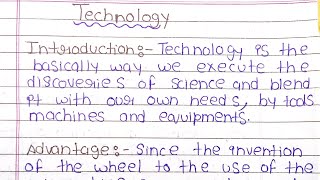 Technology
Introduction:- Technology is the
basically way we execute the
discoveries of science and blend
it with our own needs, by tools
machines and equipments.
Advantage:- Since the invention
of the wheel to the use of the